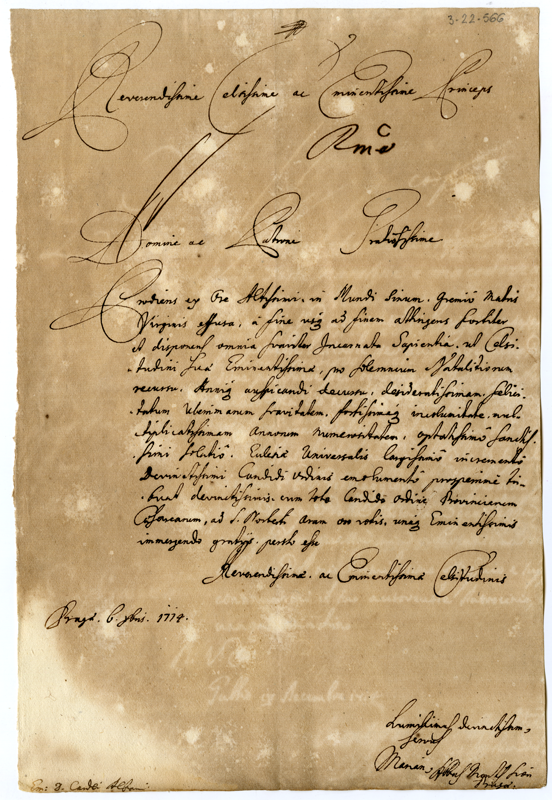 3-22-566
Reverendissime Celsissime ac Eminentissime Princeps
Domine ac Patrone Gratiosissime
Prodiens ex Ore Altissimi, in Mundi sinum, gremio Matris
Virginis effusa, à fine usq ad finem attingens fortiter
et disponens omnia suaviter Incarnata Sapientia, ut Celsi-
tudini Suæ Eminentissimæ, pro solemnium Natalitiorum
recursu, Anniq auspicandi decursu, desideratissimam felici-
tatum suavitatem, fortissimaq incolumitate, mul-
tiplicatissimam Annorum numerositatem, optatissimo Sanctis-
simi solatio, Ecclesiæ Universalis largissimo incremento
Devinctissimi Candidi ordinis emolumento
devinctissimis, cum toto Candido ordine Provinciarum
ad S. Norberti Aram votis, unaq Eminentissimis
immergendo gratijs, esse
Reverendissimæ ac Eminentissimæ Celsitudinis
Pragæ 6 Xbris. 1714.
Humillimus devinctissim
servus
Marian Abbas Sion
Pragæ
Em: D. Cardli